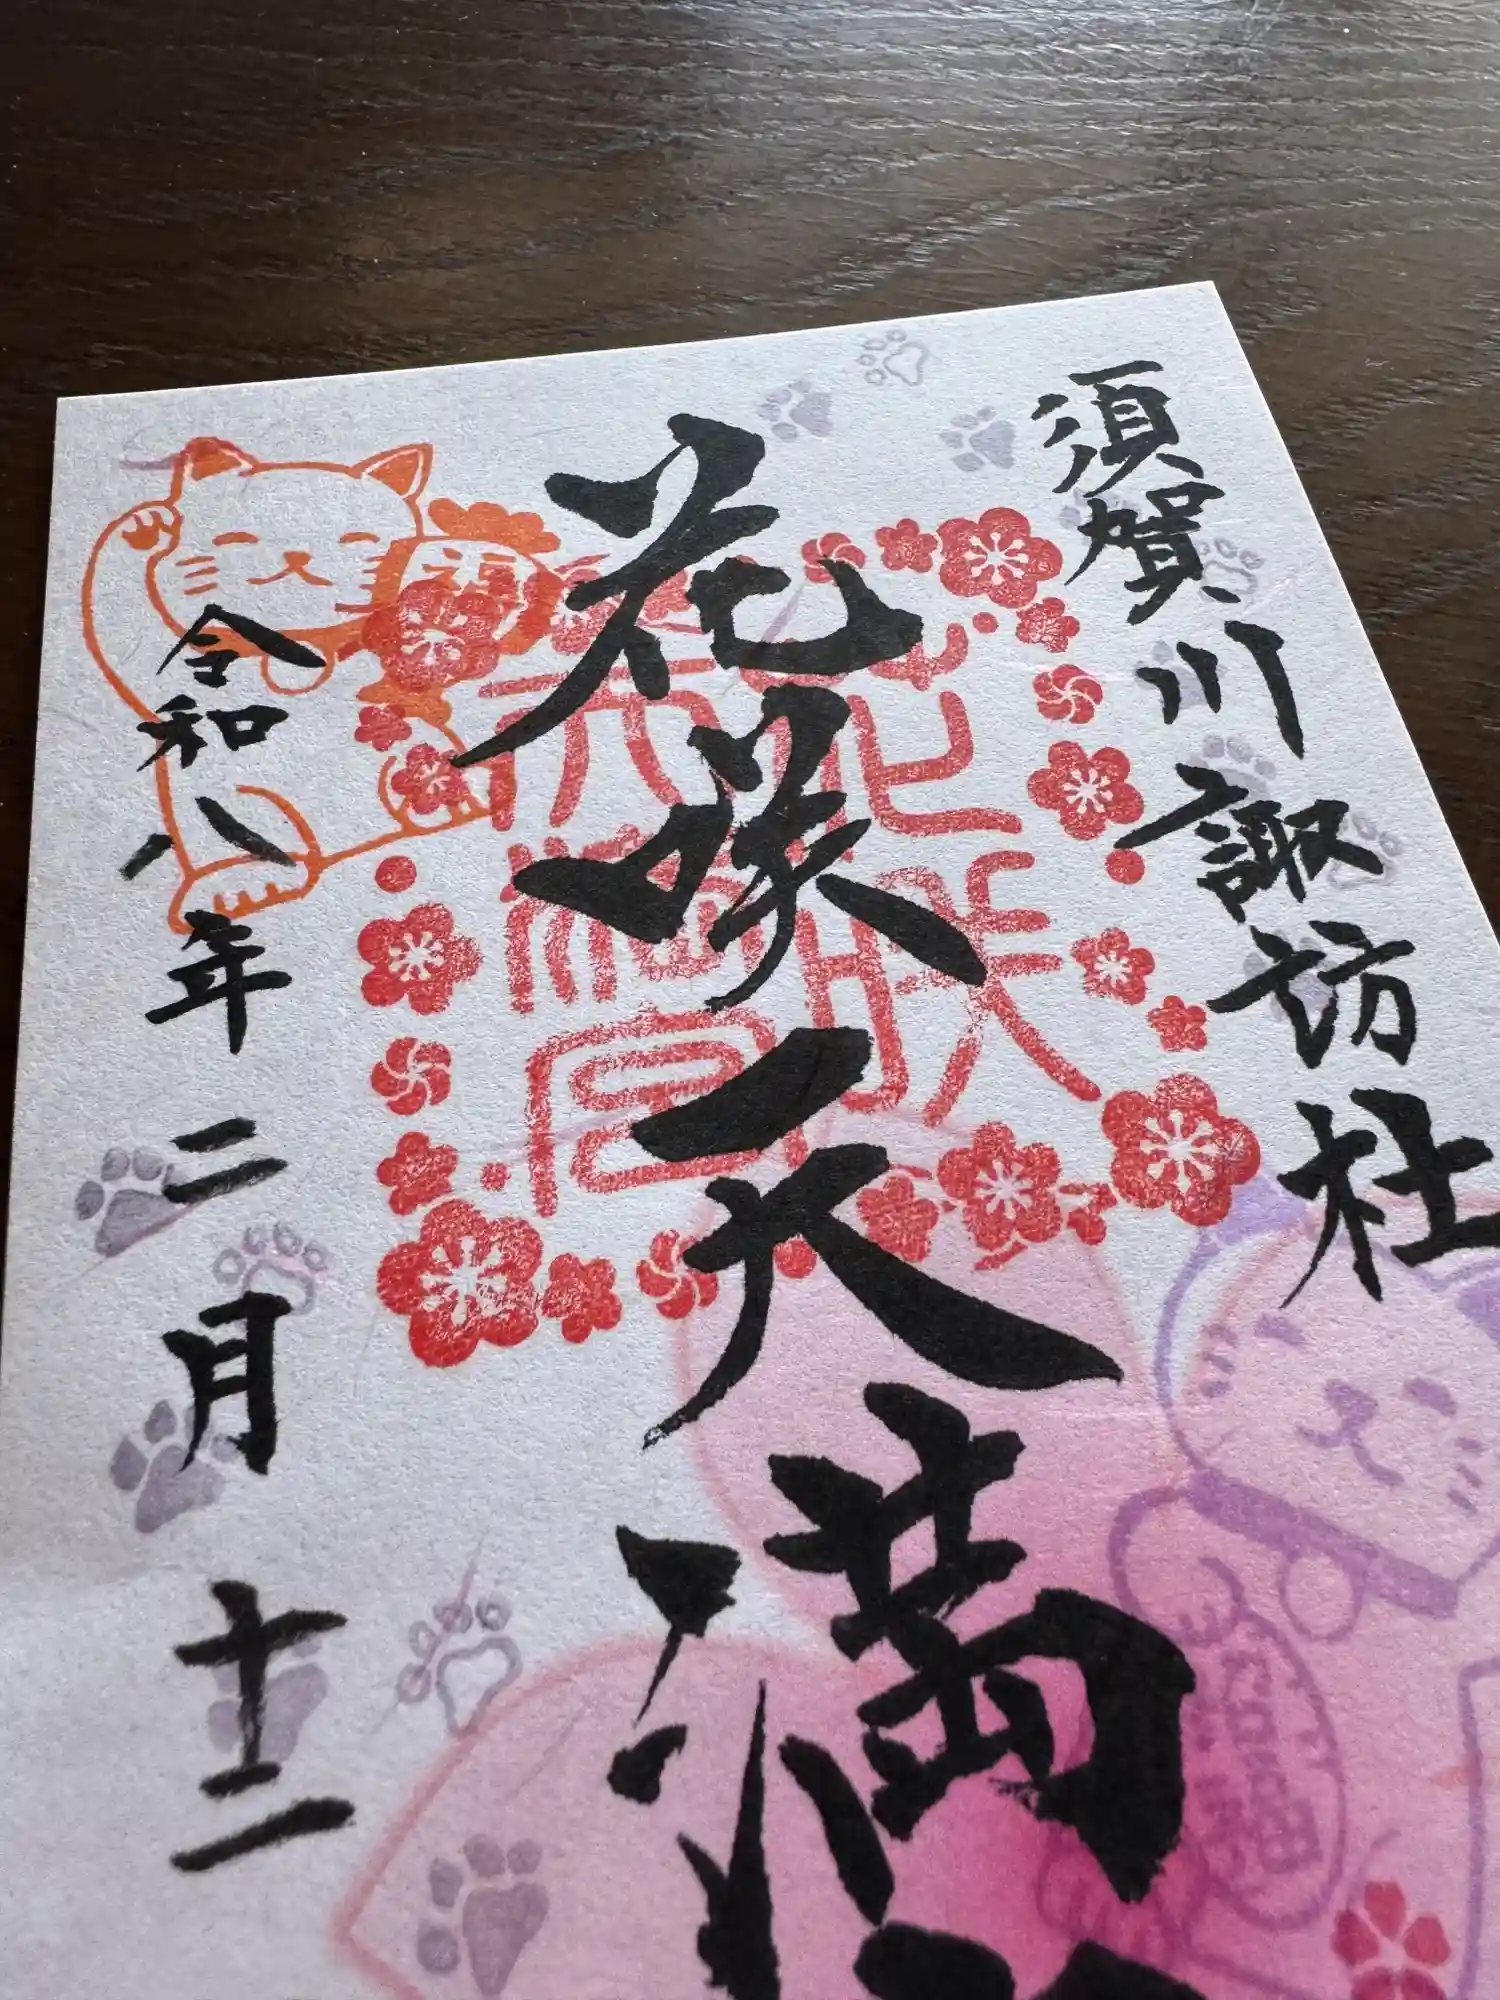 須賀川諏訪社
花咲天満
令和八年二月十二
花咲天満宮